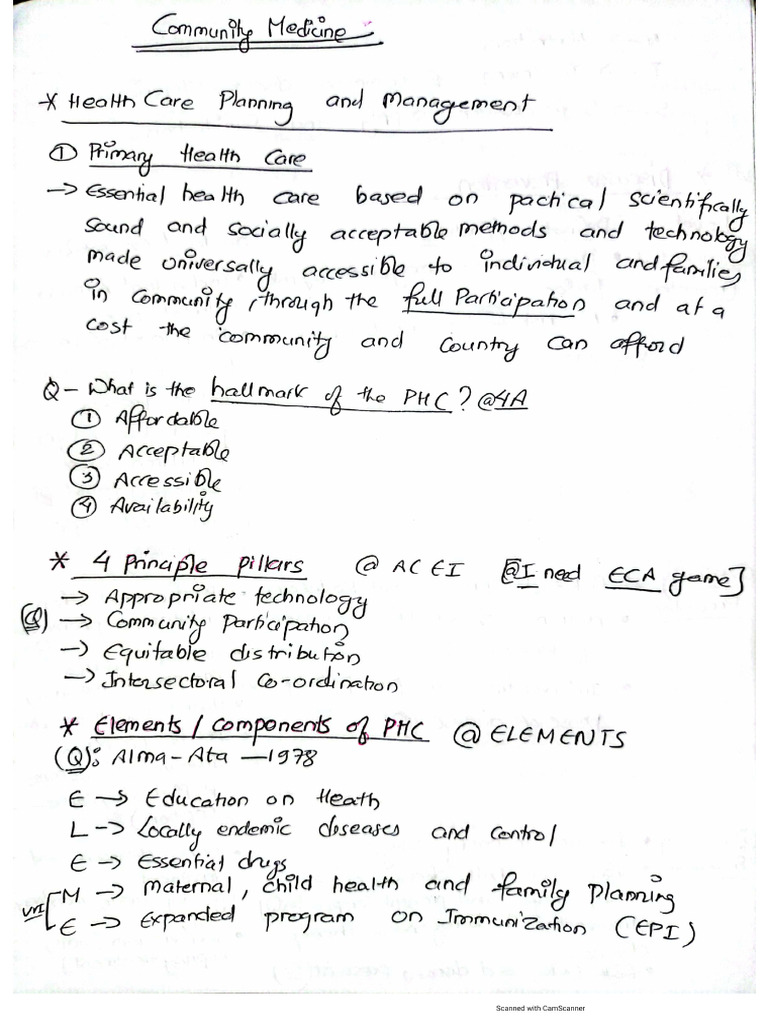 Community Medicine
* Health Care Planning and Management
① Primary Health Care
→ Essential health care based on pactical scientifically
sound and socially acceptable methods and technology
made universally accessible to individual and families
in community, through the full Participation and at a
cost the community and country can afford
Q – What is the hallmark of the PHC? @4A
① Affordable
② Acceptable
③ Accessible
④ Availability
* 4 Principle pillars @ ACEI [@I need ECA game]
→ Appropriate technology
(Q) → Community Participation
→ Equitable distribution
→ Intersectoral Co-ordination
* Elements / components of PHC @ ELEMENTS
(Q): Alma-Ata — 1978
E → Education on Heath
L → Locally endemic diseases and control
E → Essential drugs
M → Maternal, child health and family planning
E → Expanded program on Immunization (EPI)
Scanned with CamScanner